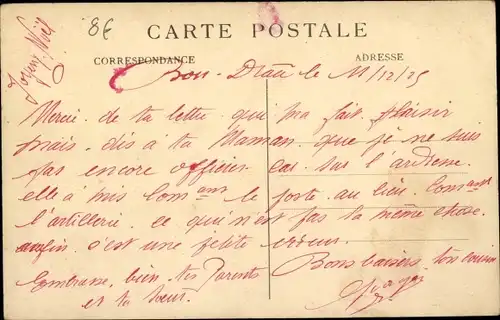 8E
Joyeux Noël
CARTE POSTALE
CORRESPONDANCE
ADRESSE
Bou-Draâ le 11/12/25
Merci de ta lettre qui m'a fait plaisir
mais dis à ta Maman que je ne suis
pas encore officier car sur l'adresse
elle a mis Comant le poste au lieu Comant
l'artillerie ce qui n'est pas la même chose
enfin c'est une petite erreur
Bons baisers ton cousin
Embrasse bien tes Parents
et ta sœur.